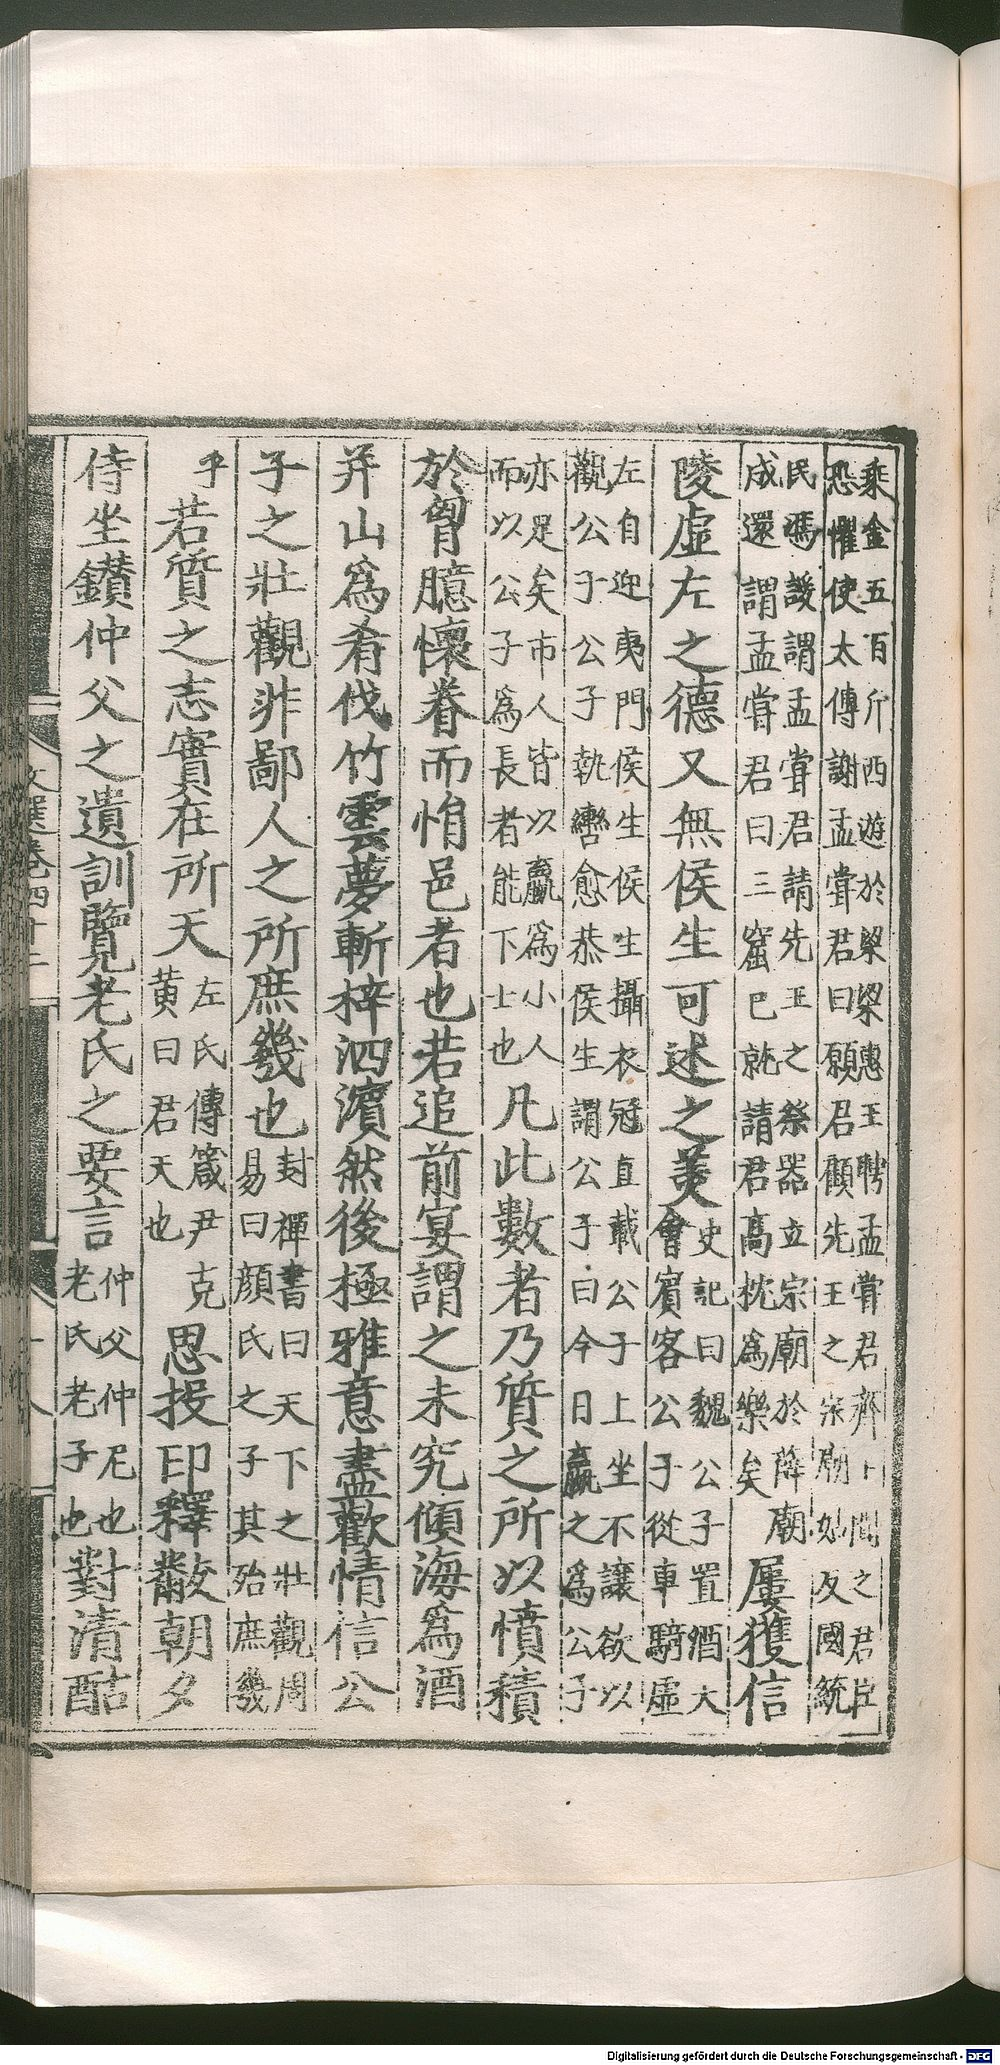 乘金五百斤西遊於梁梁惠王聘孟嘗君齊王聞之君臣
恐懼使太傅謝孟嘗君曰願君顧先王之宗廟姑反國統
民馮諼謂孟嘗君請先王之祭器立宗廟於薛廟
成還謂孟嘗君曰三窟已就請君高枕為樂矣
屢獲信
陵虛左之德又無侯生可述之美
史記曰魏公子置酒大
會賓客公子從車騎虛
左自迎夷門侯生侯生攝衣冠直載公子上坐不讓欲以
觀公子公子執轡愈恭侯生謂公子曰今日嬴之為公子
亦足矣市人皆以嬴為小人
而以公子為長者能下士也
凡此數者乃質之所以憤積
於胷臆懷眷而悁邑者也若追前宴謂之未究傾海為酒
并山為肴伐竹雲夢斬梓泗濱然後極雅意盡歡情信公
子之壯觀非鄙人之所庶幾也
封禪書曰天下之壯觀周
易曰顏氏之子其殆庶幾
乎
若質之志實在所天
左氏傳箴尹克
黄曰君天也
思投印釋黻朝夕
侍坐鑽仲父之遺訓覽老氏之要言
仲父仲尼也
老氏老子也
對清酤
文選卷四十二
Digitalisierung gefördert durch die Deutsche Forschungsgemeinschaft - DFG